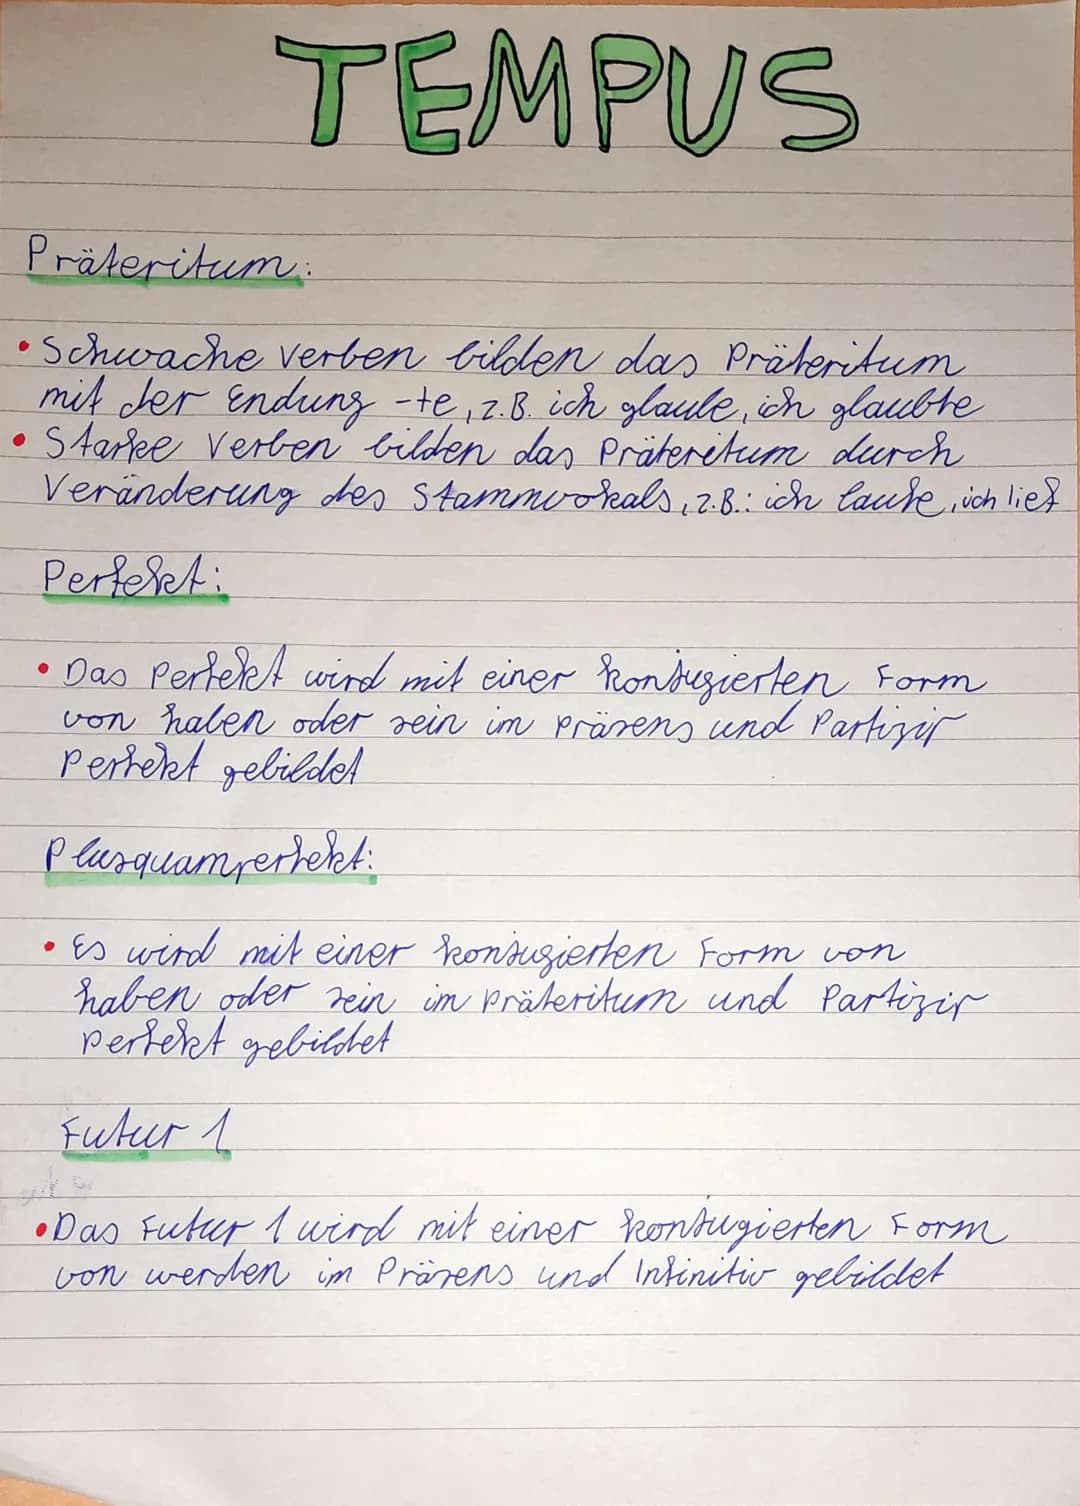 TEMPUS
Präteritum:
• Schwache Verben bilden das Präteritum
mit der Endung -te, z.B. ich glaube, ich glaubte
• Starke Verben bilden das Präteritum durch
Veränderung des Stammvokals, z.B.: ich laufe, ich lief
Perfekt:
• Das Perfekt wird mit einer konjugierten Form
von haben oder sein im Präsens und Partizip
Perfekt gebildet
Plusquamperfekt:
• Es wird mit einer konjugierten Form von
haben oder sein im Präteritum und Partizip
Perfekt gebildet
Futur 1
• Das Futur 1 wird mit einer konjugierten Form
von werden im Präsens und Infinitiv gebildet